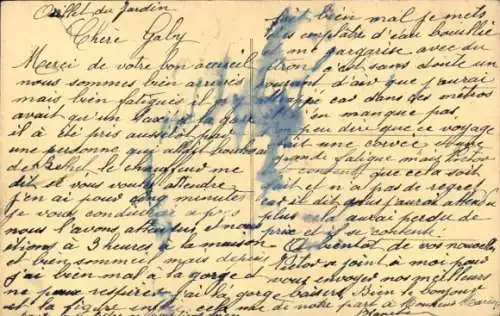 Billet du Jardin
Chère Gaby
Merci de votre bon accueil
nous sommes bien arrivés
mais bien fatigués il n'y
avait qu'un taxi à la gare
il a été pris aussitôt par
une personne qui allait
le chauffeur me
dit si vous voulez attendre
j'en ai pour cinq minutes
je vous conduirai après
nous l'avons attendu et nous
étions à 3 heures à la maison
et bien sommeil mais depuis
j'ai bien mal à la gorge et
ne peux respirer j'ai la gorge
et la figure enflée cela me
fait bien mal je mets
des emplâtre d'eau bouillie
et me gargarise avec du
citron c'est sans doute un
courant d'air que j'aurai
attrapé car dans les métros
on manque pas
on peu dire que ce voyage
fait une corvée
grande fatigue mais Victor
content que cela soit
fait et n'a pas de regret
car il dit plus j'aurai attendu
plus cela aurai perdu de
prix et il se contente
A bientôt de vos nouvelles
Victor a joint à moi pour
vous envoyer nos meilleurs
baisers Bien le bonjour
de notre part à Monsieur
Blanche